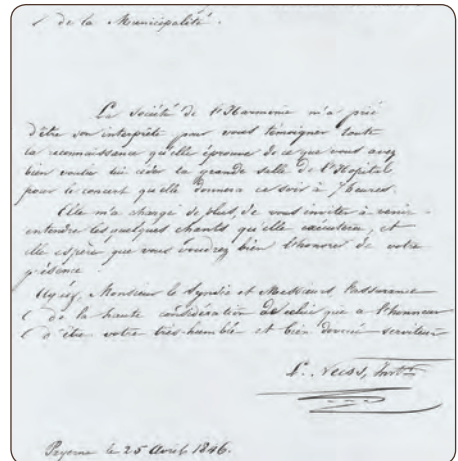 de la Municipalité.
La Société de l'Harmonie m'a prié
d'être son interprète pour vous témoigner toute
la reconnaissance qu'elle éprouve de ce que vous avez
bien voulu lui céder la grande salle de l'Hôpital
pour le concert qu'elle donnera ce soir à 7 heures.
Elle m'a chargé de plus, de vous inviter à venir
entendre les quelques chants qu'elle exécutera, et
elle espère que vous voudrez bien l'honorer de votre
présence
Agréez, Monsieur le Syndic et Messieurs, l'assurance
de la haute considération de celui qui a l'honneur
d'être votre très-humble et bien dévoué serviteur
Payerne le 25 Avril 1846.